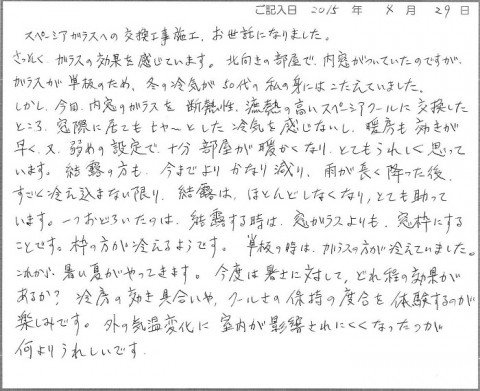 ご記入日 2015 年 4 月 29 日
スペーシアガラスへの交換工事施工、お世話になりました。
さっそく、ガラスの効果を感じています。北向きの部屋で、内窓がついていたのですが、
ガラスが単板のため、冬の冷気が50代の私の身にはこたえていました。
しかし、今回、内窓のガラスを断熱性、遮熱の高いスペーシアクールに交換した
ところ、窓際に居てもヒヤーとした冷気を感じないし、暖房も効きが
早く、又、弱めの設定で、十分部屋が暖かくなり、とてもうれしく思って
います。結露の方も、今までよりかなり減り、雨が長く降った後、
すごく冷え込まない限り、結露は、ほとんどしなくなり、とても助って
います。一つおどろいたのは、結露する時は、窓ガラスよりも、窓枠にする
ことです。枠の方が冷えるようです。単板の時は、ガラスの方が冷えていました。
これから、暑い夏がやってきます。今度は暑さに対して、どれ程の効果が
あるか？冷房の効き具合いや、クールさの保持の度合を体験するのが
楽しみです。外の気温変化に室内が影響されにくくなったのが
何よりうれしいです。